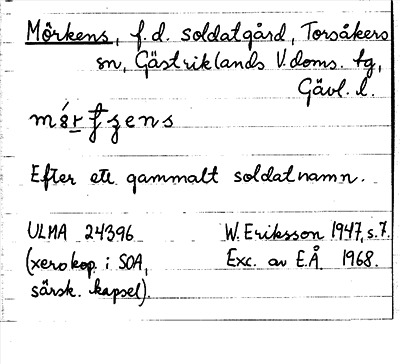 Mörkens, f.d. soldatgård, Torsåkers
sn, Gästriklands V. doms. tg,
Gävl. l.
Efter ett gammalt soldatnamn.
ULMA 24396
(xerokop. i SOA,
särsk. kapsel).
W. Eriksson 1947, s. 7.
Exc. av E.Å. 1968.